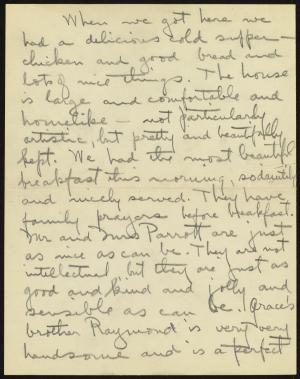 When we got here we
had a delicious cold supper —
chicken and good bread and
lots of nice things. The house
is large and comfortable and
homelike — not particularly
artistic, but pretty and beautifully
kept. We had the most beautiful
breakfast this morning, so daintily
and nicely served. They have
family prayers before breakfast.
Mr and Mrs Parrott are just
as nice as can be. They are not
intellectual but they are just as
good and kind and jolly and
sensible as can be. Grace's
brother Raymond is very very
handsome and is a perfect